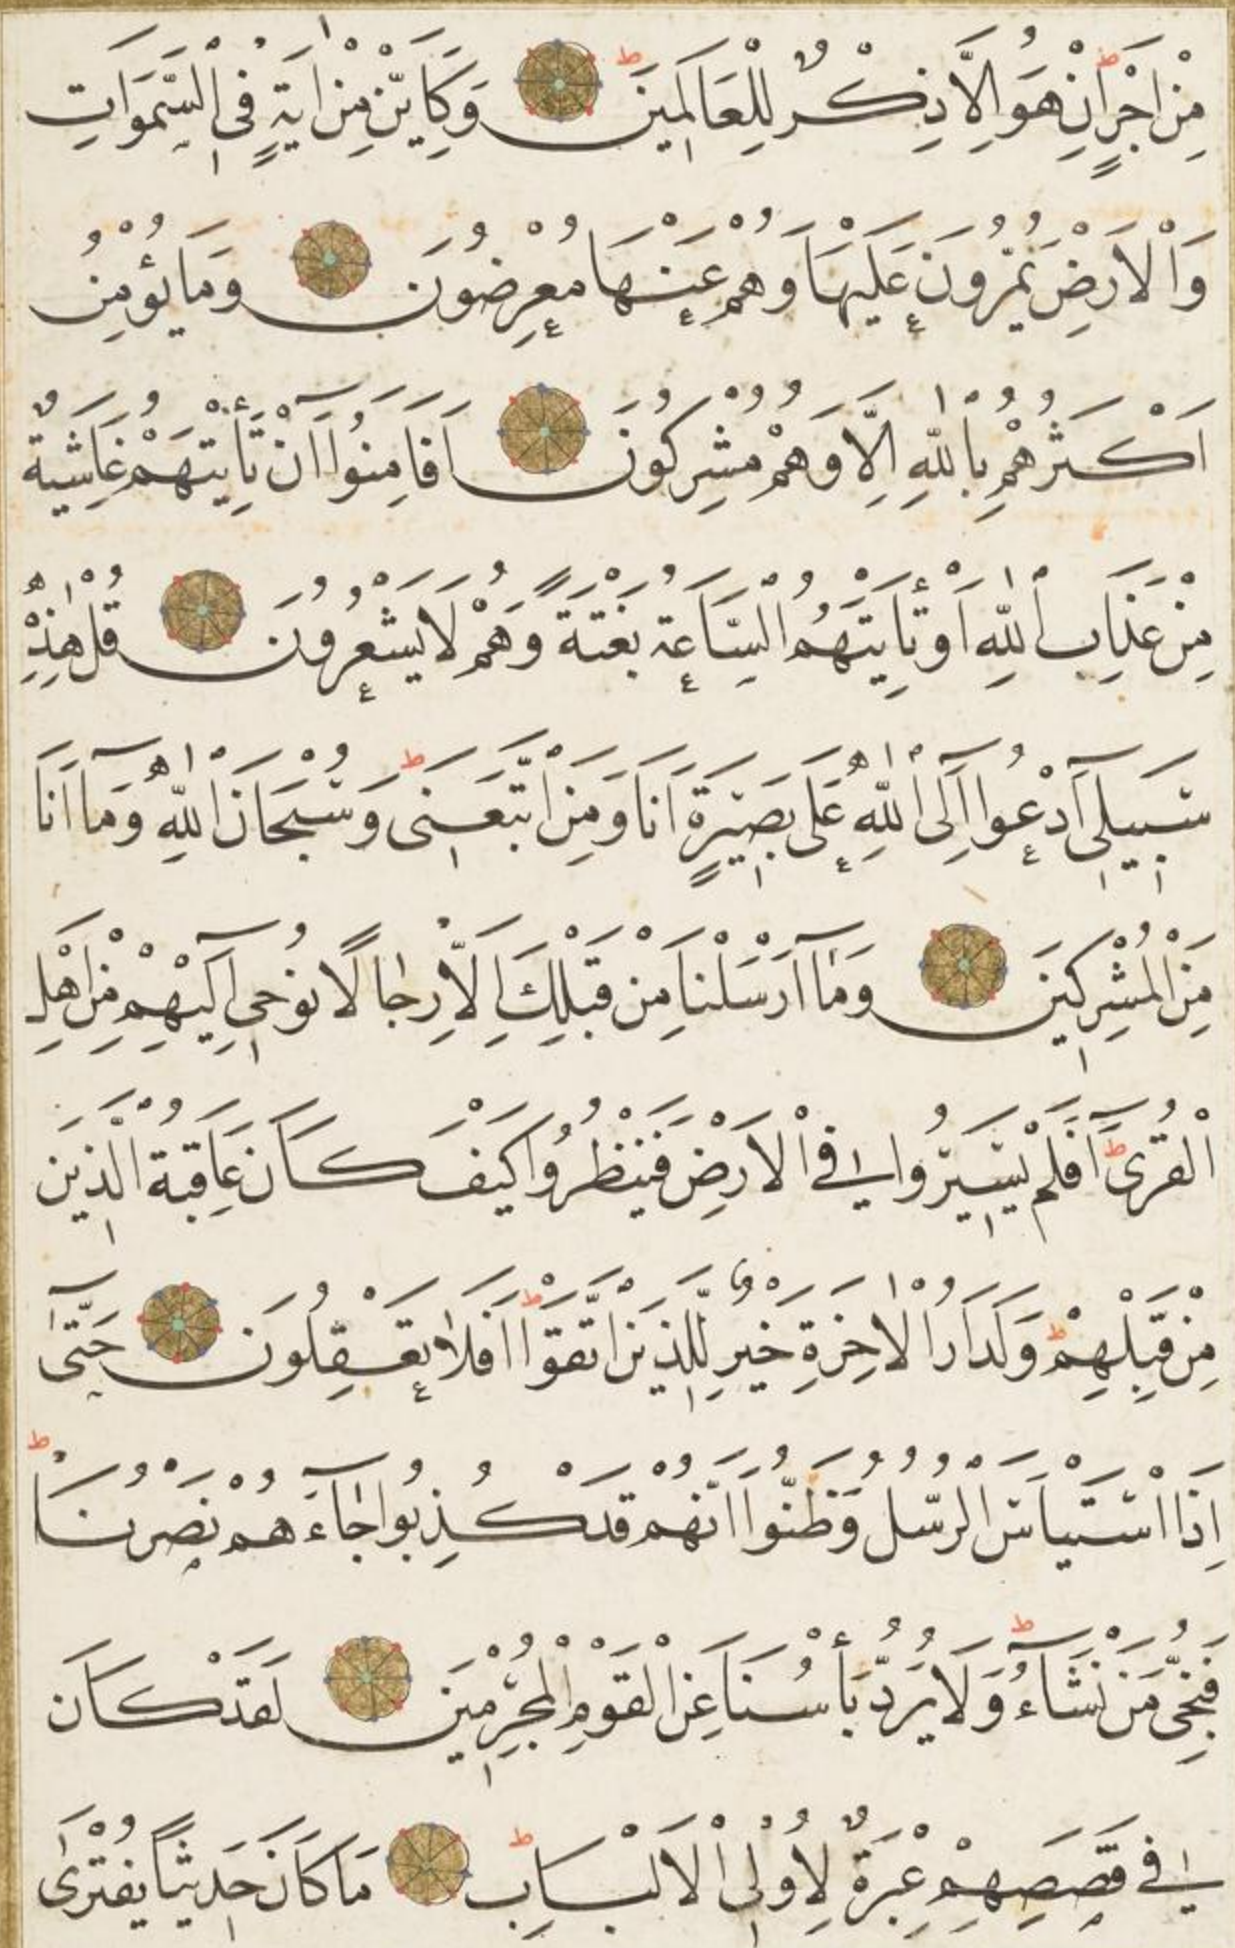 مِنْ اَجْرٍ اِنْ هُوَ اِلَّا ذِكْرٌ لِلْعَالَمِينَ ۝ وَكَاَيِّنْ مِنْ اٰيَةٍ فِى السَّمَوَاتِ
وَالْاَرْضِ يَمُرُّونَ عَلَيْهَا وَهُمْ عَنْهَا مُعْرِضُونَ ۝ وَمَا يُؤْمِنُ
اَكْثَرُهُمْ بِاللّٰهِ اِلَّا وَهُمْ مُشْرِكُونَ ۝ اَفَاَمِنُوا اَنْ تَأْتِيَهُمْ غَاشِيَةٌ
مِنْ عَذَابِ اللّٰهِ اَوْ تَأْتِيَهُمُ السَّاعَةُ بَغْتَةً وَهُمْ لَا يَشْعُرُونَ ۝ قُلْ هٰذِهٖ
سَبِيلِى اَدْعُوا اِلَى اللّٰهِ عَلَى بَصِيرَةٍ اَنَا وَمَنِ اتَّبَعَنِى وَسُبْحَانَ اللّٰهِ وَمَا اَنَا
مِنَ الْمُشْرِكِينَ ۝ وَمَا اَرْسَلْنَا مِنْ قَبْلِكَ اِلَّا رِجَالًا نُوحِى اِلَيْهِمْ مِنْ اَهْلِ
الْقُرَى اَفَلَمْ يَسِيرُوا فِى الْاَرْضِ فَيَنْظُرُوا كَيْفَ كَانَ عَاقِبَةُ الَّذِينَ
مِنْ قَبْلِهِمْ وَلَدَارُ الْاٰخِرَةِ خَيْرٌ لِلَّذِينَ اتَّقَوْا اَفَلَا تَعْقِلُونَ ۝ حَتَّى
اِذَا اسْتَيْاَسَ الرُّسُلُ وَظَنُّوا اَنَّهُمْ قَدْ كُذِبُوا جَاءَهُمْ نَصْرُنَا
فَنُجِّىَ مَنْ نَشَاءُ وَلَا يُرَدُّ بَأْسُنَا عَنِ الْقَوْمِ الْمُجْرِمِينَ ۝ لَقَدْ كَانَ
فِى قَصَصِهِمْ عِبْرَةٌ لِاُولِى الْاَلْبَابِ ۝ مَا كَانَ حَدِيثًا يُفْتَرٰى